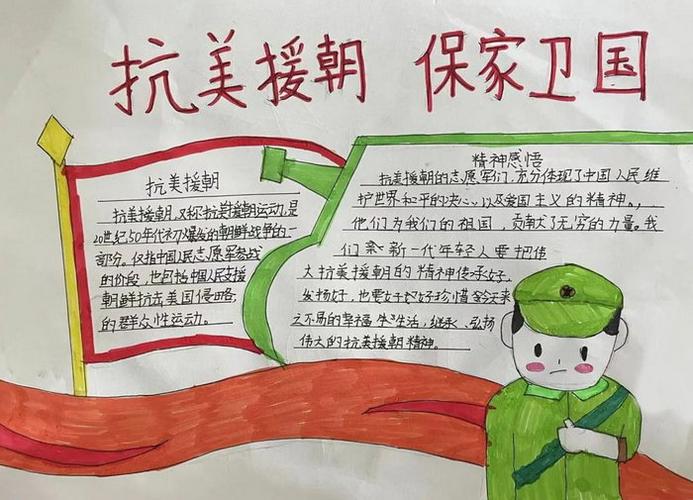 抗美援朝 保家卫国
抗美援朝
抗美援朝,又称抗美援朝运动,是
20世纪50年代初爆发的朝鲜战争的一
部分。仅指中国人民志愿军参战
的阶段,也包括中国人民支援
朝鲜抗击美国侵略,
的群众性运动。
精神感悟
抗美援朝的志愿军们,充分体现了中国人民维
护世界和平的决心,以及爱国主义的精神。,
他们为我们的祖国,贡献了无穷的力量。我
们 新一代年轻人要把伟
大抗美援朝的精神传承好,
发扬好,也要好好珍惜今天来
之不易的幸福生活,继承、弘扬
伟大的抗美援朝精神。